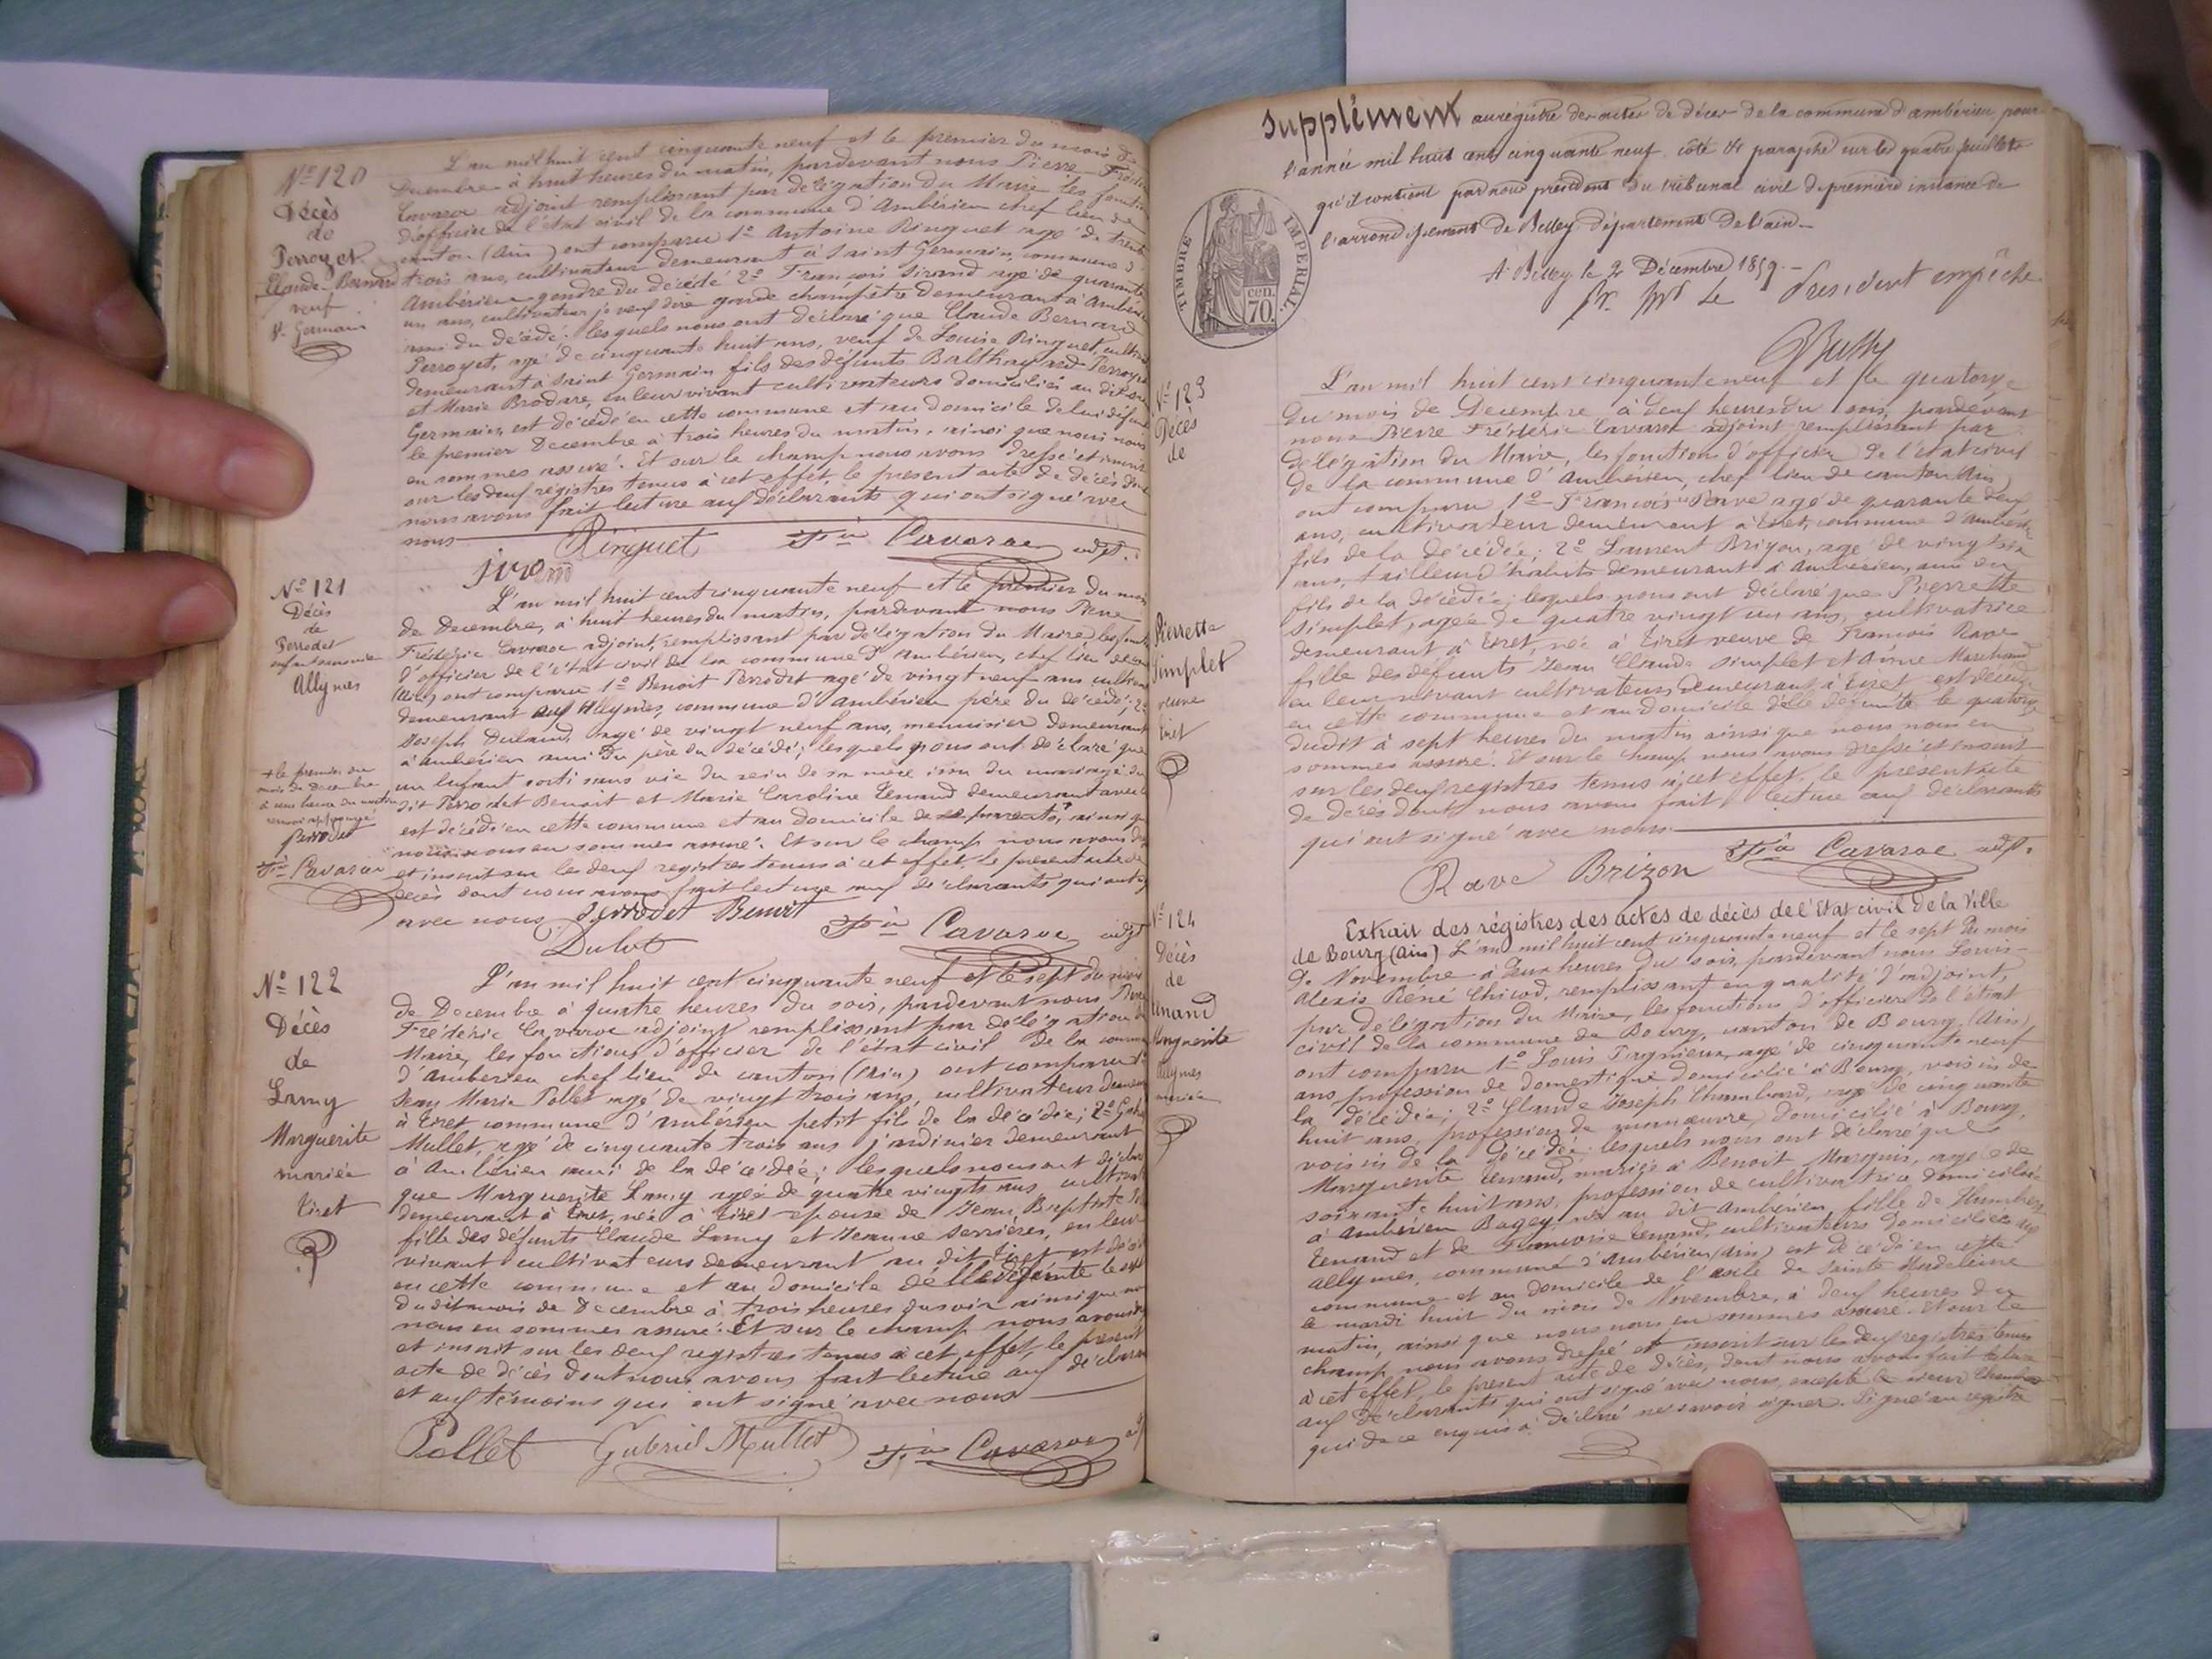 Nº 120
Décès
de
Perroyet
Claude Bernard
veuf
St Germain
L'an mil huit cent cinquante neuf et le premier du mois de
Decembre à huit heures du matin, pardevant nous Pierre Frédéric
Cavaroc adjoint remplissant par délégation du Maire les fonctions
d'officier de l'état civil de la commune d'Ambérieu chef lieu de
canton (Ain) ont comparu 1º Antoine Ringuet agé de trente
trois ans, cultivateur demeurant à Saint Germain, commune d'
Ambérieu gendre du décédé 2º François Sirand agé de quarante
un ans, cultivateur garde champêtre demeurant à Ambérieu
ami du décédé. lesquels nous ont déclaré que Claude Bernard
Perroyet, agé de cinquante huit ans, veuf de Louise Ringuet, cultivateur
demeurant à Saint Germain fils des défunts Balthazard Perroyet
et Marie Brodare, en leur vivant cultivateurs domiciliés au dit Saint
Germain, est décédé en cette commune et au domicile de lui défunt
le premier Decembre à trois heures du matin, ainsi que nous nous
en sommes assuré. Et sur le champ nous avons dressé et inscrit
sur les deux régistres tenus à cet effet, le present acte de décès dont
nous avons fait lecture aux déclarants qui ont signé avec
nous
Ringuet Fric Cavaroc adjt.
Sirand
Nº 121
Décès
de
Perrodet
enfant sans vie
Allymes
L'an mil huit cent cinquante neuf et le premier du mois
de Decembre, à huit heures du matin, pardevant nous Pierre
Frédéric Cavaroc adjoint, remplissant par délégation du Maire, les fonctions
d'officier de l'état civil de la commune d'Ambérieu, chef lieu de canton
(Ain) ont comparu 1º Benoit Perrodet agé de vingt neuf ans cultivateur
demeurant aux Allymes, commune d'Ambérieu père du décédé; 2º
Joseph agé de vingt neuf ans, menuisier demeurant
à Ambérieu ami du père du décédé; lesquels nous ont déclaré que
un Enfant sorti sans vie du sein de sa mère issu du mariage du
dit Perrodet Benoit et Marie Caroline Tenand demeurant avec
est décédé en cette commune et au domicile de parents, ainsi que
nous nous en sommes assuré. Et sur le champ nous avons dressé
et inscrit sur les deux registres tenus à cet effet, le present acte de
décès dont nous avons fait lecture aux déclarants qui ont signé
avec nous
+ le premier du
mois de Decembre
à une heure du matin
renvoi approuvé
Perrodet
Fric Cavaroc
Perrodet Benoit Fric Cavaroc adjt
Nº 122
Décès
de
Lamy
Marguerite
mariée
Tiret
L'an mil huit cent cinquante neuf et le sept du mois
de Decembre à quatre heures du soir, pardevant nous Pierre
Frédéric Cavaroc adjoint remplissant par délégation du
Maire, les fonctions d'officier de l'état civil de la commune
d'Ambérieu chef lieu de canton (Ain) ont comparu 1º
Jean Marie Pollet agé de vingt trois ans, cultivateur demeurant
à Tiret commune d'Ambérieu petit fils de la décédée; 2º Gabriel
Mullet, agé de cinquante trois ans jardinier demeurant
à Ambérieu ami de la décédée; lesquels nous ont déclaré
que Marguerite Lamy agée de quatre vingts ans cultivatrice
demeurant à Tiret, née à Tiret epouse de Jean Baptiste
fille des défunts Claude Lamy et Jeanne Serrières, en leur
vivant cultivateurs demeurant au dit Tiret est décédée
en cette commune et au domicile d'elle défunte le sept
dudit mois de Decembre à trois heures du soir ainsi que nous
nous en sommes assuré. Et sur le champ nous avons dressé
et inscrit sur les deux registres tenus à cet effet, le present
acte de décès dont nous avons fait lecture aux déclarants
et aux témoins qui ont signé avec nous
Pollet Gabriel Mullet Fric Cavaroc adj
Supplément au régistre des actes de décès de la commune d'ambérieu, pour
l'année mil huit cent cinquante neuf, coté et paraphé sur les quatre feuillets
qu'il contient par nous président du tribunal civil de première instance de
l'arrondissement de Belley, département de l'ain.
A Belley le 2 Décembre 1859.
Pr. Mr Le Président empêché
TIMBRE IMPERIAL.
cen.
70.
Nº 123
Décès
de
Pierrette
Simplet
veuve
Tiret
L'an mil huit cent cinquante neuf et le quatorze
du mois de Decembre à deux heures du soir, pardevant
nous Pierre Frédéric Cavaroc adjoint remplissant par
délégation du Maire, les fonctions d'officier de l'état civil
de la commune d'Ambérieu, chef lieu de canton (Ain)
ont comparu 1º François Rave agé de quarante deux
ans, cultivateur demeurant à Tiret, commune d'Ambérieu
fils de la décédée; 2º Laurent Brizon, agé de vingt six
ans, tailleur d'habits demeurant à Ambérieu, ami du
fils de la décédée; lesquels nous ont déclaré que Pierrette
Simplet, agée de quatre vingt un ans, cultivatrice
demeurant à Tiret, née à Tiret veuve de François Rave
fille des défunts Jean Claude Simplet et Aimé Marchand
en leur vivant cultivateurs demeurant à Tiret est décédée
en cette commune et au domicile d'elle défunte le quatorze
dudit à sept heures du matin ainsi que nous nous en
sommes assuré. Et sur le champ nous avons dressé et inscrit
sur les deux registres tenus à cet effet, le présent acte
de décès dont nous avons fait lecture aux déclarants
qui ont signé avec nous
Rave Brizon Fric Cavaroc adjt.
Nº 124
Décès
de
Tenand
Marguerite
Allymes
mariée
Extrait des régistres des actes de décès de l'Etat civil de la Ville
de Bourg (Ain) L'an mil huit cent cinquante neuf et le sept du mois
de Novembre à deux heures du soir, pardevant nous Louis
Alexis René Chicod, remplissant en qualité d'adjoint,
par délégation du Maire, les fonctions d'officier de l'état
civil de la commune de Bourg, canton de Bourg (Ain)
ont comparu 1º Louis Pagnieux, agé de cinquante neuf
ans, profession de domestique domicilié à Bourg, voisin de
la décédée; 2º Claude Joseph Chambard, agé de cinquante
huit ans, profession de manœuvre, domicilié à Bourg,
voisin de la décédée; lesquels nous ont déclaré que
Marguerite Tenand, mariée à Benoit Marquis, agée de
soixante huit ans, profession de cultivatrice domiciliée
à Ambérieu Bugey, née au dit Ambérieu, fille de Humbert
Tenand et de Françoise Tenand, cultivateurs domiciliés aux
Allymes, commune d'Ambérieu (Ain) est décédée en cette
commune et au domicile de l'asile de Sainte Madeleine
le mardi huit du mois de Novembre, à deux heures du
matin, ainsi que nous nous en sommes assuré. Et sur le
champ nous avons dressé et inscrit sur les deux registres tenus
à cet effet, le present acte de décès, dont nous avons fait lecture
aux déclarants qui ont signé avec nous, excepté le sieur Chambard
qui de ce enquis a déclaré ne savoir signer. Signé au registre